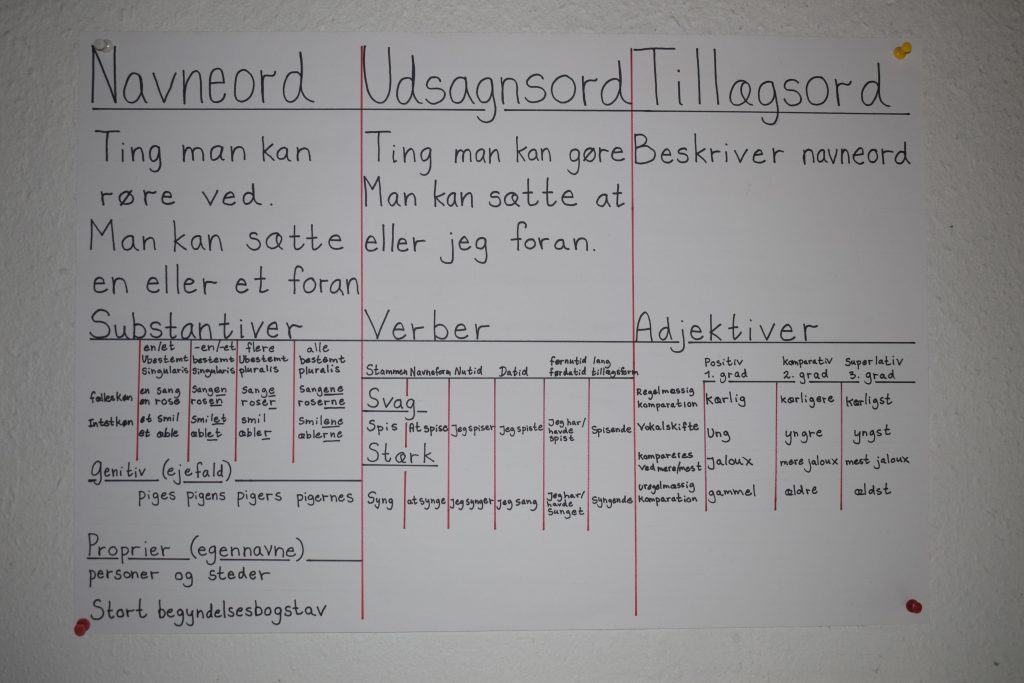 Navneord
Ting man kan
røre ved.
Man kan sætte
en eller et foran
Substantiver
en/et -en/-et flere alle
Ubestemt bestemt Ubestemt bestemt
Singularis Singularis pluralis pluralis
fælleskøn en sang Sangen Sange Sangene
en rose rosen roser roserne
Intetkøn et smil Smilet smil Smilene
et æble æblet æbler æblerne
Genitiv (ejefald)
piges pigens pigers pigernes
Proprier (egennavne)
personer og steder
Stort begyndelsesbogstav
Udsagnsord
Ting man kan gøre
Man kan sætte at
eller jeg foran.
Verber
Stammen Navneform Nutid Datid førnutid førdatid lang tillægsform
Svag
Spis At spise Jeg spiser Jeg spiste Jeg har/ havde spist Spisende
Stærk
Syng at synge Jeg synger Jeg sang Jeg har/ havde Sunget Syngende
Tillægsord
Beskriver navneord
Adjektiver
Positiv komparativ Superlativ
1. grad 2. grad 3. grad
Regelmæssig komparation kærlig kærligere kærligst
Vokalskifte Ung yngre yngst
kompareres ved mere/mest Jaloux mere jaloux mest jaloux
uregelmæssig komparation gammel ældre ældst